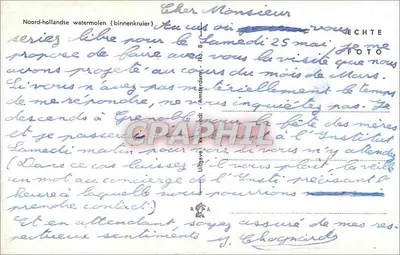 Cher Monsieur
Noord-hollandse watermolen (binnenkruier)
Au cas où vous
seriez libre pour le Samedi 25 mai, je me
propose de faire avec vous la visite que nous
avons projeté au cours du mois de Mars.
Si vous n'avez pas matériellement le temps
de me répondre, ne vous inquiétez pas. Je
descends à Grenoble pour la fête des mères
et je passerai à l'Institut
Samedi matin si vous m'y attendez
(Dans ce cas laissez s'il vous plait la veille
un mot au concierge de l'Inst. précisant l'
heure à laquelle nous pourrions
prendre contact)
Et en attendant, soyez assuré de mes res-
pectueux sentiments
ECHTE
FOTO
CPARAMA
R A